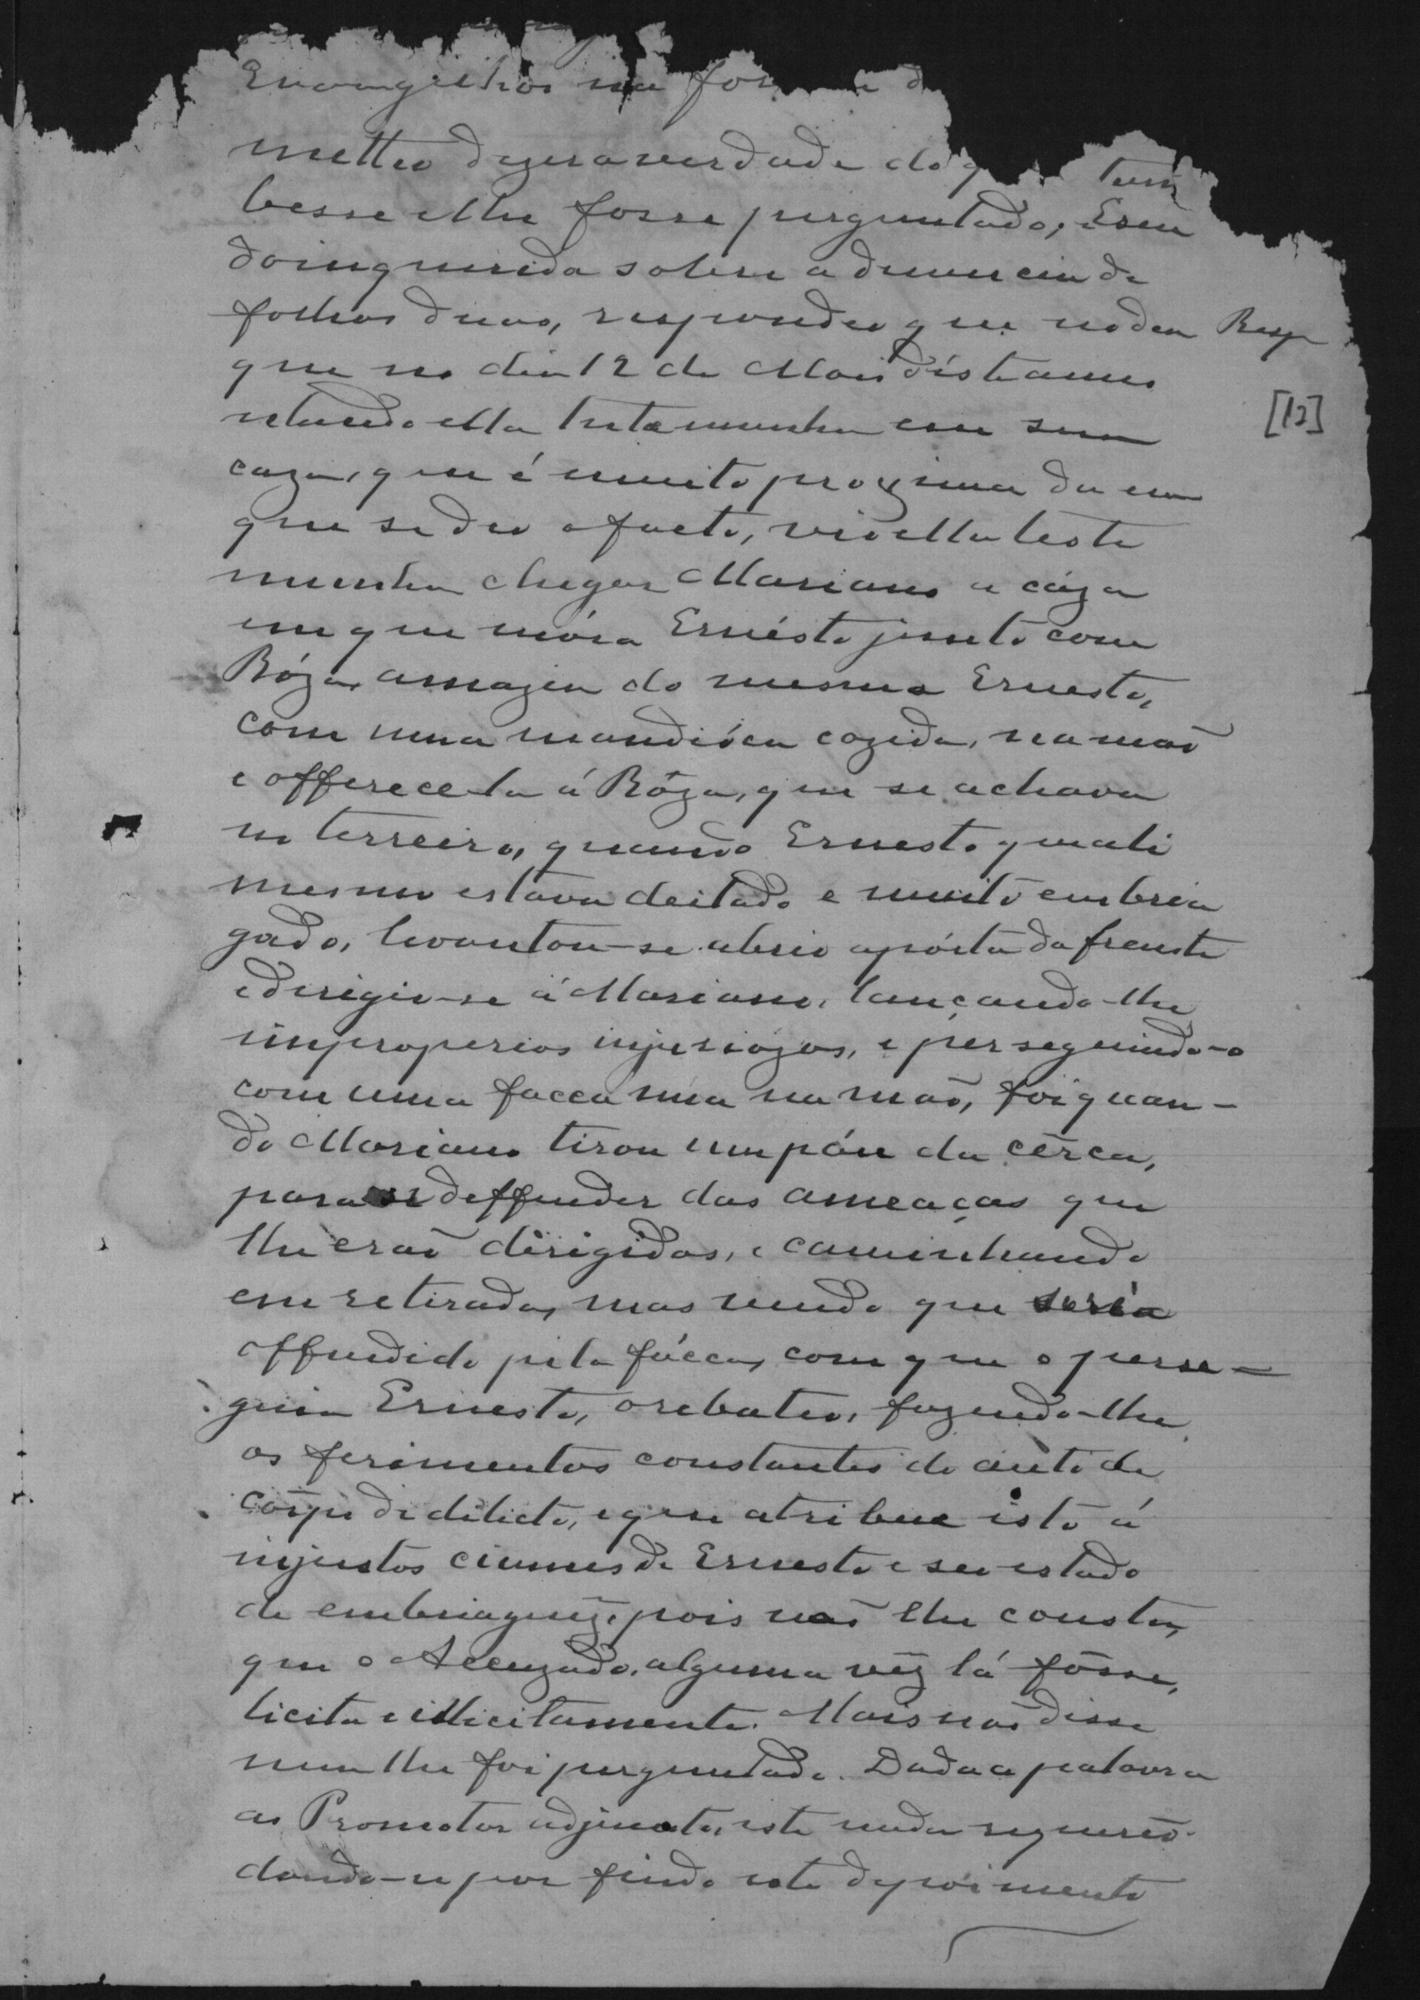 Evangelhos na for
metteo dizer a verdade do q
besse e lhe fosse perguntado, E sen
do inquerida sobre a denuncia de
folhas duas, respondeo que
Resp
que no dia 12 de Maio d'este anno
[12]
estando ella testemunha em sua
caza, que é muito proxima da em
que se deo o facto, vio ella teste
munha chegar Mariano a cáza
em que móra Ernésto junto com
Róza, amazia do mesmo Ernesto,
com uma mandióca cozida, na mão
e offerecel-a á Róza, que se achava
no terreiro, quando Ernesto que ali
mesmo estava deitado e muito embria
gado, levantou-se abrio a pórta da frente
e dirigio-se á Mariano, lançando-lhe
improperios injuriózos, e perseguindo-o
com uma facca núa na mão, foi quan-
do Mariano tirou um páu da cêrca,
para se deffender das ameaças que
lhe erão dirigidas, e caminhando
em retirada, mas vendo que seria
offendido pela fácca, com que o perse-
guia Ernesto, o rebateo, fazendo-lhe
os ferimentos constantes do auto de
côrpo de delicto, e que atribue isto á
injustos ciumes de Ernesto e seo estado
de embriaguêz, pois não lhe consta,
que o Accuzado, alguma vêz lá fôsse,
licita e illicitamente. Mais não disse
nem lhe foi perguntado. Dada a palavra
ao Promotor adjunto, este nada requereo.
dando-se por findo este depoimento